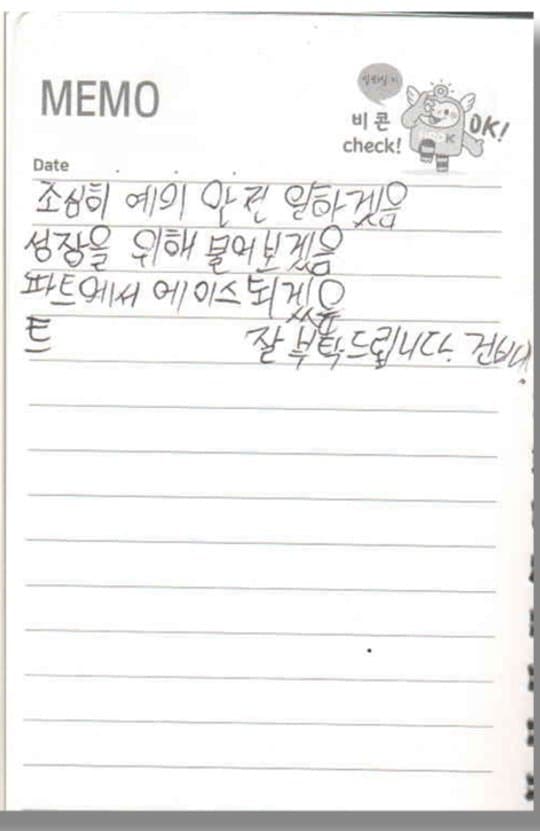 MEMO
비콘
check!
OK!
Date
조심히 예의 안전 일하겠음
성장을 위해 물어보겠음
파트에서 에이스 되겠음
트
잘 부탁드립니다. 건배!